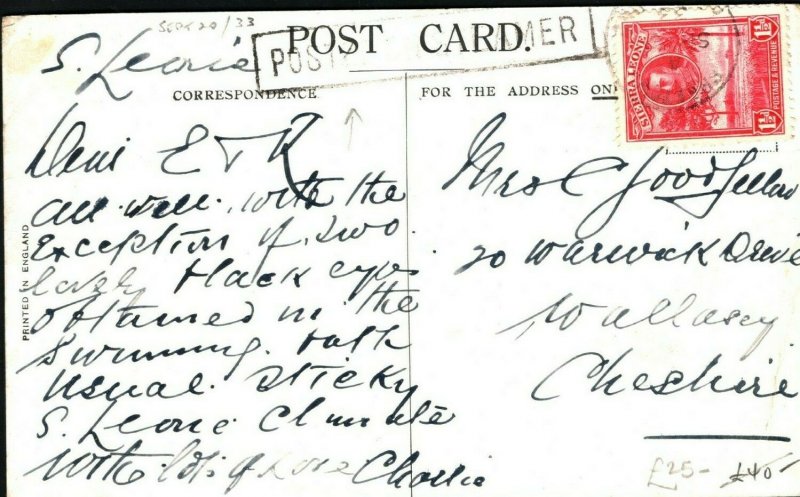 Sept 20/33
POST CARD.
POST MER
S. Leone
CORRESPONDENCE
FOR THE ADDRESS ONLY
SIERRA LEONE
1½D
POSTAGE & REVENUE
1½D
PRINTED IN ENGLAND
Dear E & K
all well, with the
exception of two
lovely black eyes
obtained in the
swimming bath
usual sticky
S. Leone Climate
with lots of love Charlie
Mrs C Goodfellow
20 Warwick Drive
Wallasey
Cheshire
£25- £40-